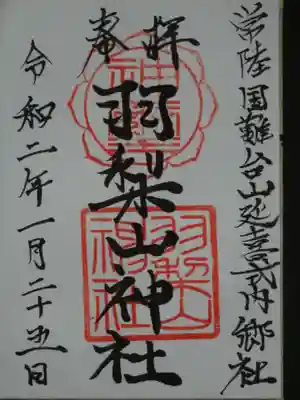 常陸国難台山延喜式内郷社
奉拝
羽梨山神社
令和二年一月二十五日
羽梨山神社